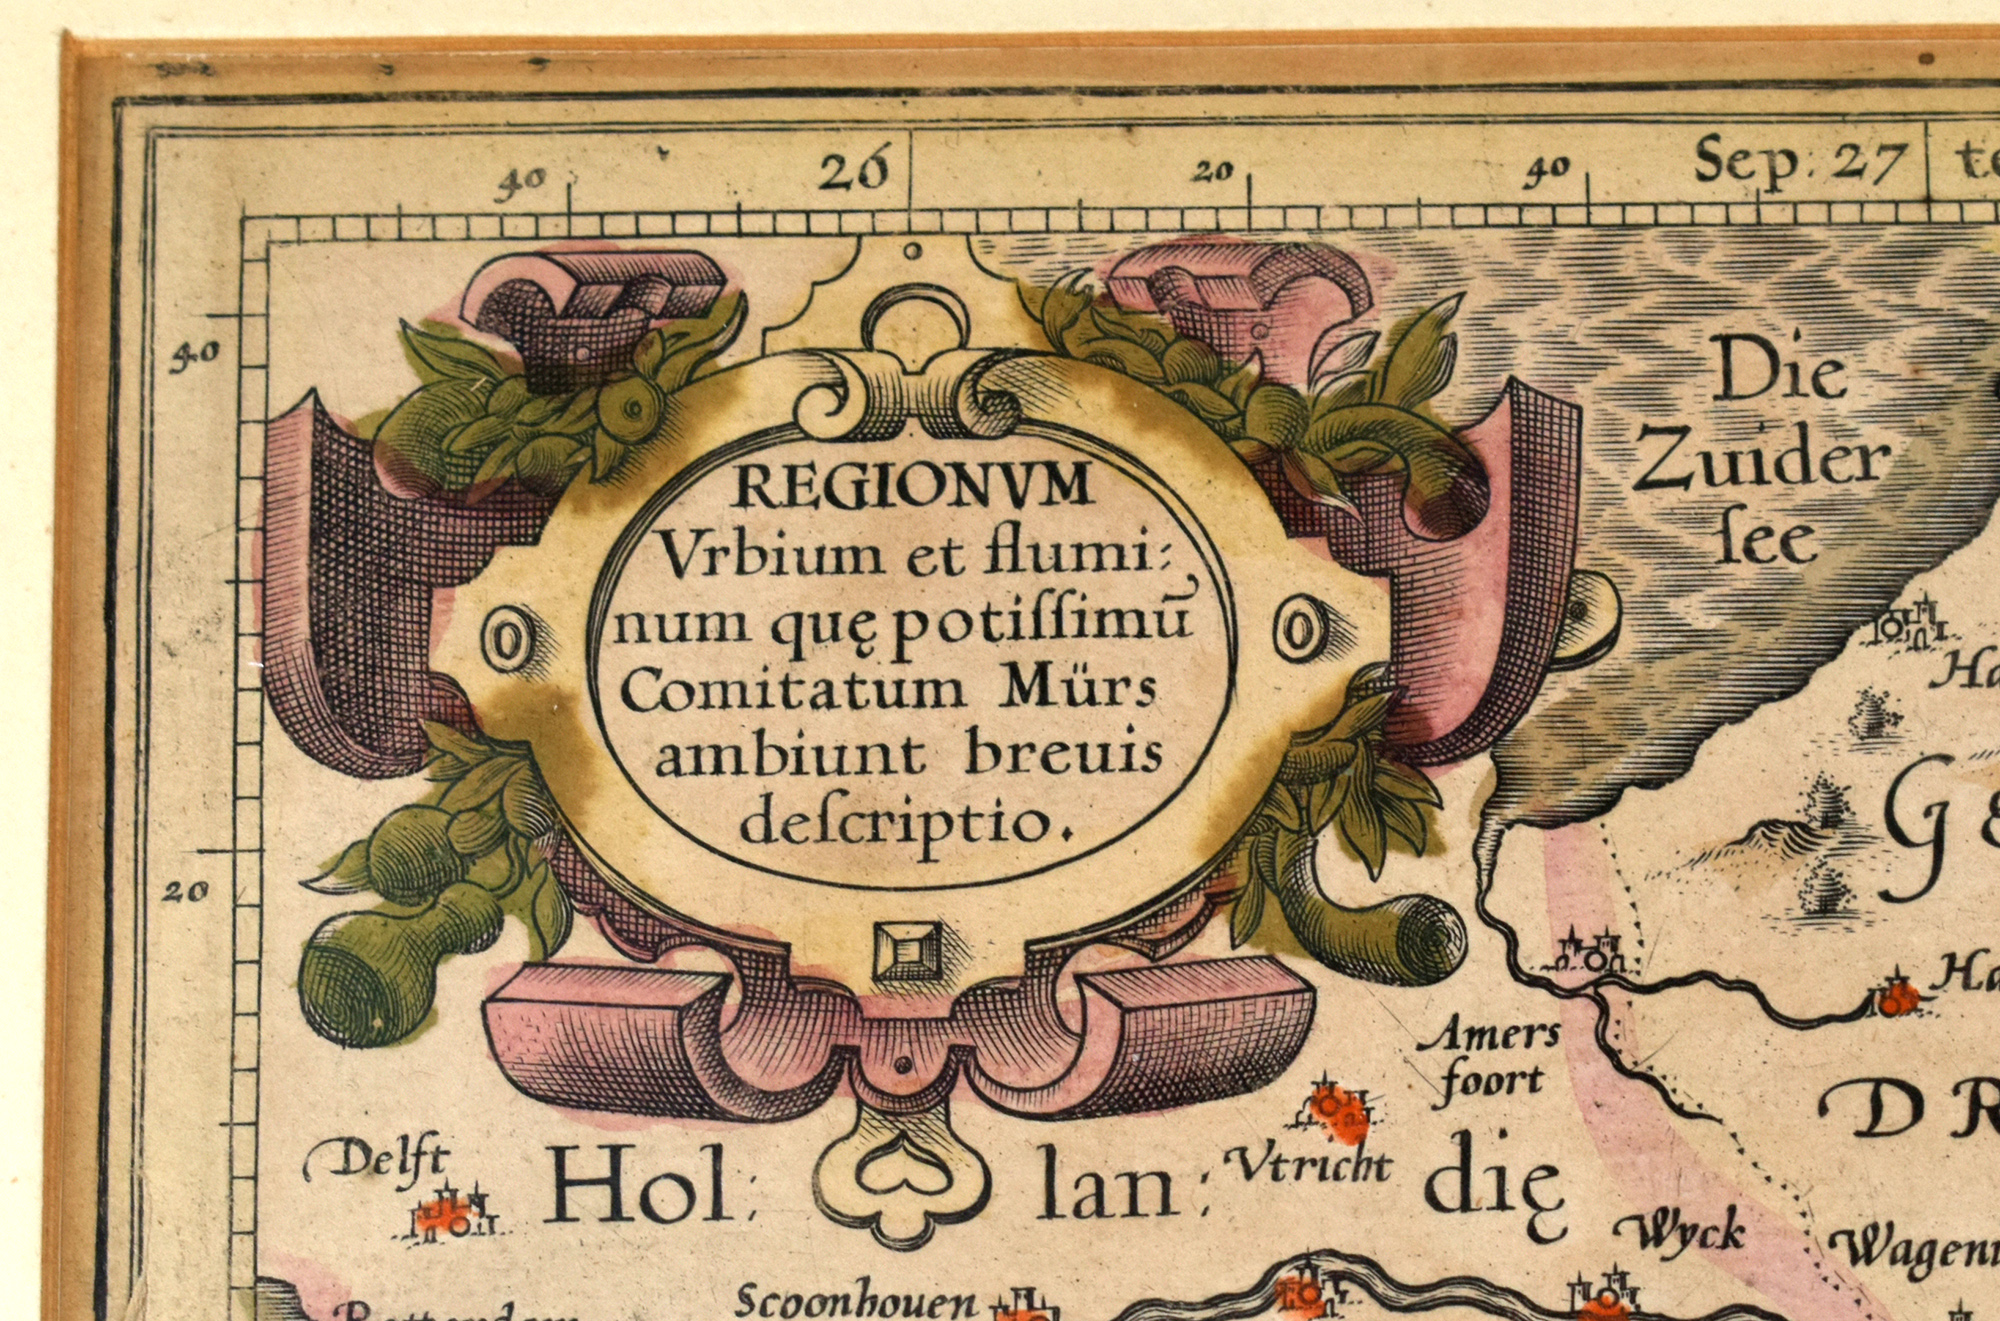 40 26 20 40 Sep: 27
40
20
REGIONVM
Vrbium et flumi:
num quę potiſſimū
Comitatum Mürs
ambiunt breuis
deſcriptio.
Die
Zuider
ſee
Amers
foort
Delft
Hol: lan: dię
Vtricht
Wyck
Scoonhouen